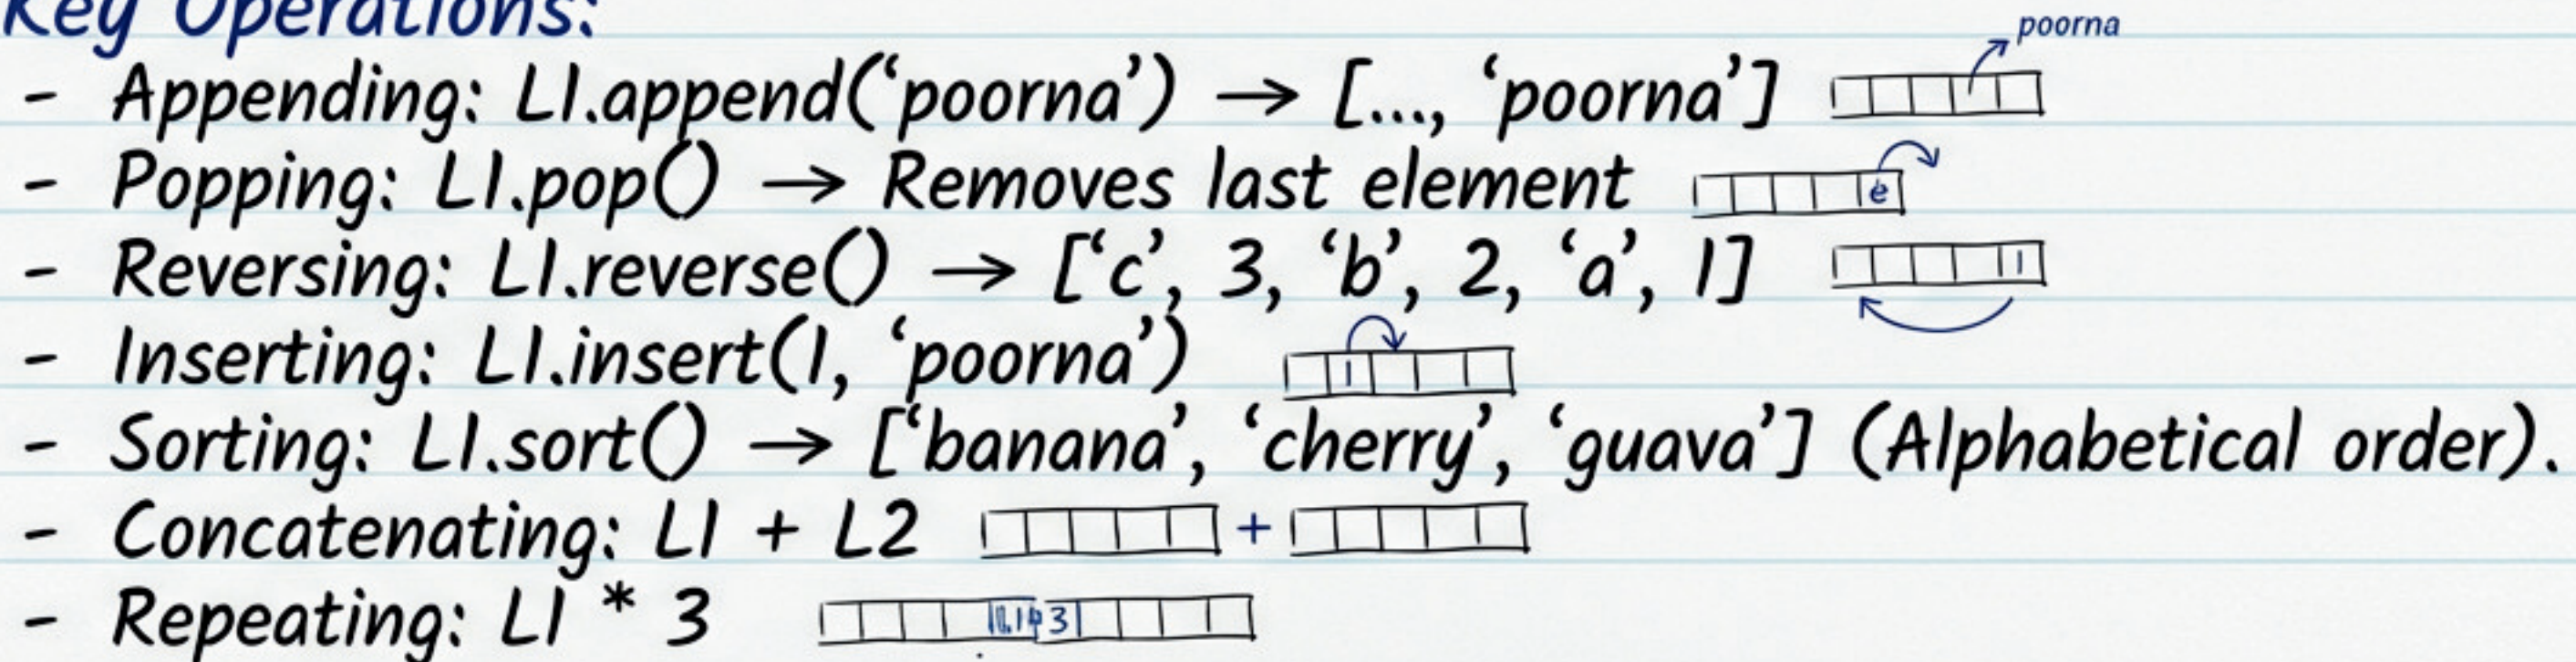 Key Operations:
poorna
- Appending: L1.append(‘poorna’) → [..., ‘poorna’]
- Popping: L1.pop() → Removes last element e
- Reversing: L1.reverse() → [‘c’, 3, ‘b’, 2, ‘a’, 1] 1
- Inserting: L1.insert(1, ‘poorna’) 1
- Sorting: L1.sort() → [‘banana’, ‘cherry’, ‘guava’] (Alphabetical order).
- Concatenating: L1 + L2 +
- Repeating: L1 * 3 3